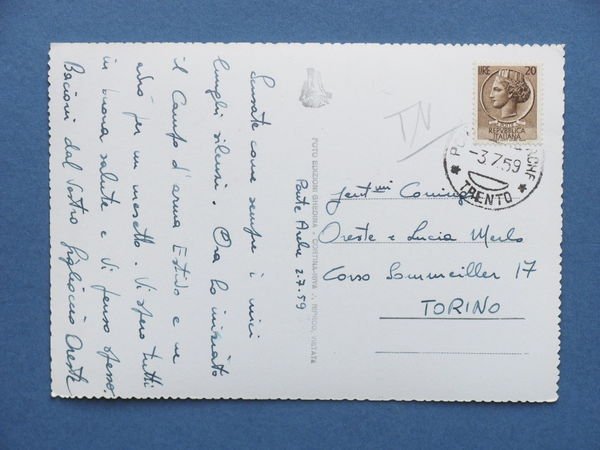 Ponte Arche 2.7.59
Scusate come sempre i miei
lunghi silenzi. Ora ho iniziato
il Campo d'arma Estivo e ne
avrò per un mesetto. Vi spero tutti
in buona salute e Vi penso spesso.
Bacioni dal Vostro figlioccio Oreste
FOTO EDIZIONI GHEDINA - CORTINA-RIVA RIPROD. VIETATA
TN
LIRE 20
REPVBBLICA
ITALIANA
-3.7.59
TRENTO
Gent.mi Coniugi
Oreste e Lucia Merlo
Corso Sommeiller 17
TORINO